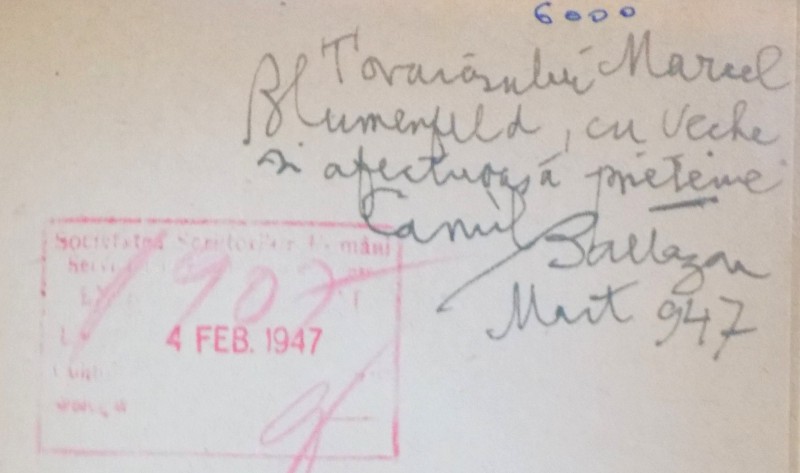 6000
Tovarășului Marcel
Blumenfeld, cu veche
și afectuoasă prietenie
Camil Baltazar
Mart 947
Societatea Scriitorilor Români
1907
4 FEB. 1947